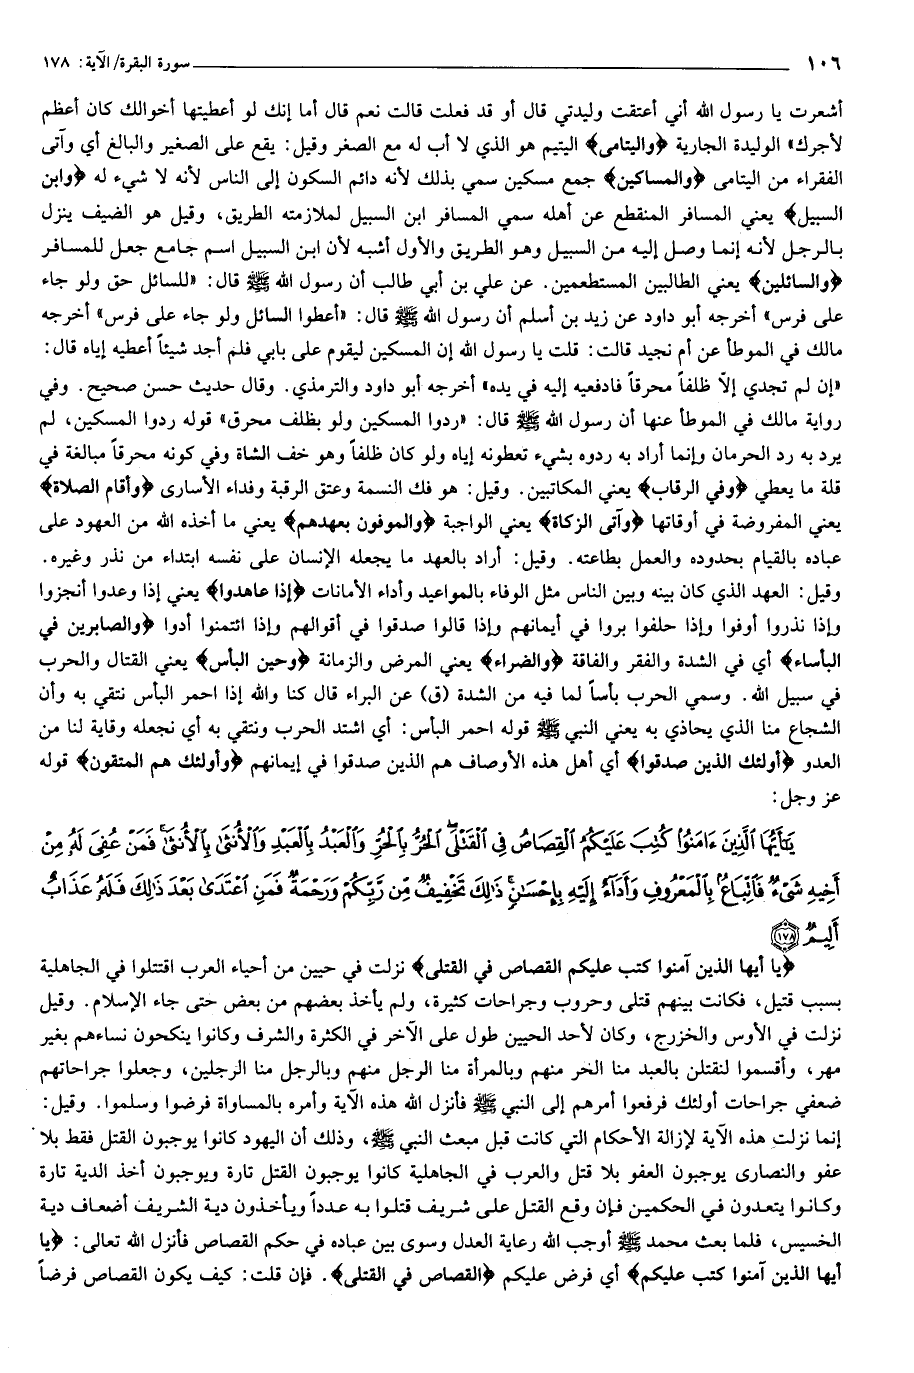 ١٠٦ سورة البقرة/ الآية: ١٧٨
أشعرت يا رسول الله أني أعتقت وليدتي قال أو قد فعلت قالت نعم قال أما إنك لو أعطيتها أخوالك كان أعظم
لأجرك» الوليدة الجارية ﴿واليتامى﴾ اليتيم هو الذي لا أب له مع الصغر وقيل: يقع على الصغير والبالغ أي وآتى
الفقراء من اليتامى ﴿والمساكين﴾ جمع مسكين سمي بذلك لأنه دائم السكون إلى الناس لأنه لا شيء له ﴿وابن
السبيل﴾ يعني المسافر المنقطع عن أهله سمي المسافر ابن السبيل لملازمته الطريق، وقيل هو الضيف ينزل
بالرجل لأنه إنما وصل إليه من السبيل وهو الطريق والأول أشبه لأن ابن السبيل اسم جامع جعل للمسافر
﴿والسائلين﴾ يعني الطالبين المستطعمين. عن علي بن أبي طالب أن رسول الله ﷺ قال: «للسائل حق ولو جاء
على فرس» أخرجه أبو داود عن زيد بن أسلم أن رسول الله ﷺ قال: «أعطوا السائل ولو جاء على فرس» أخرجه
مالك في الموطأ عن أم نجيد قالت: قلت يا رسول الله إن المسكين ليقوم على بابي فلم أجد شيئاً أعطيه إياه قال:
«إن لم تجدي إلاّ ظلفاً محرقاً فادفعيه إليه في يده» أخرجه أبو داود والترمذي. وقال حديث حسن صحيح. وفي
رواية مالك في الموطأ عنها أن رسول الله ﷺ قال: «ردوا المسكين ولو بظلف محرق» قوله ردوا المسكين، لم
يرد به رد الحرمان وإنما أراد به ردوه بشيء تعطونه إياه ولو كان ظلفاً وهو خف الشاة وفي كونه محرقاً مبالغة في
قلة ما يعطي ﴿وفي الرقاب﴾ يعني المكاتبين. وقيل: هو فك النسمة وعتق الرقبة وفداء الأسارى ﴿وأقام الصلاة﴾
يعني المفروضة في أوقاتها ﴿وآتى الزكاة﴾ يعني الواجبة ﴿والموفون بعهدهم﴾ يعني ما أخذه الله من العهود على
عباده بالقيام بحدوده والعمل بطاعته. وقيل: أراد بالعهد ما يجعله الإنسان على نفسه ابتداء من نذر وغيره.
وقيل: العهد الذي كان بينه وبين الناس مثل الوفاء بالمواعيد وأداء الأمانات ﴿إذا عاهدوا﴾ يعني إذا وعدوا أنجزوا
وإذا نذروا أوفوا وإذا حلفوا بروا في أيمانهم وإذا قالوا صدقوا في أقوالهم وإذا ائتمنوا أدوا ﴿والصابرين في
البأساء﴾ أي في الشدة والفقر والفاقة ﴿والضراء﴾ يعني المرض والزمانة ﴿وحين البأس﴾ يعني القتال والحرب
في سبيل الله. وسمي الحرب بأساً لما فيه من الشدة (ق) عن البراء قال كنا والله إذا احمر البأس نتقي به وأن
الشجاع منا الذي يحاذي به يعني النبي ﷺ قوله احمر البأس: أي اشتد الحرب ونتقي به أي نجعله وقاية لنا من
العدو ﴿أولئك الذين صدقوا﴾ أي أهل هذه الأوصاف هم الذين صدقوا في إيمانهم ﴿وأولئك هم المتقون﴾ قوله
عز وجل:
يَٰٓأَيُّهَا ٱلَّذِينَ ءَامَنُوا۟ كُتِبَ عَلَيْكُمُ ٱلْقِصَاصُ فِى ٱلْقَتْلَى ۖ ٱلْحُرُّ بِٱلْحُرِّ وَٱلْعَبْدُ بِٱلْعَبْدِ وَٱلْأُنثَىٰ بِٱلْأُنثَىٰ ۚ فَمَنْ عُفِىَ لَهُۥ مِنْ
أَخِيهِ شَىْءٌ فَٱتِّبَاعٌۢ بِٱلْمَعْرُوفِ وَأَدَآءٌ إِلَيْهِ بِإِحْسَٰنٍ ۗ ذَٰلِكَ تَخْفِيفٌ مِّن رَّبِّكُمْ وَرَحْمَةٌ ۗ فَمَنِ ٱعْتَدَىٰ بَعْدَ ذَٰلِكَ فَلَهُۥ عَذَابٌ
أَلِيمٌ ١٧٨
﴿يا أيها الذين آمنوا كتب عليكم القصاص في القتلى﴾ نزلت في حيين من أحياء العرب اقتتلوا في الجاهلية
بسبب قتيل، فكانت بينهم قتلى وحروب وجراحات كثيرة، ولم يأخذ بعضهم من بعض حتى جاء الإسلام. وقيل
نزلت في الأوس والخزرج، وكان لأحد الحيين طول على الآخر في الكثرة والشرف وكانوا ينكحون نساءهم بغير
مهر، وأقسموا لنقتلن بالعبد منا الخر منهم وبالمرأة منا الرجل منهم وبالرجل منا الرجلين، وجعلوا جراحاتهم
ضعفي جراحات أولئك فرفعوا أمرهم إلى النبي ﷺ فأنزل الله هذه الآية وأمره بالمساواة فرضوا وسلموا. وقيل:
إنما نزلت هذه الآية لإزالة الأحكام التي كانت قبل مبعث النبي ﷺ، وذلك أن اليهود كانوا يوجبون القتل فقط بلا
عفو والنصارى يوجبون العفو بلا قتل والعرب في الجاهلية كانوا يوجبون القتل تارة ويوجبون أخذ الدية تارة
وكانوا يتعدون في الحكمين فإن وقع القتل على شريف قتلوا به عدداً ويأخذون دية الشريف أضعاف دية
الخسيس، فلما بعث محمد ﷺ أوجب الله رعاية العدل وسوى بين عباده في حكم القصاص فأنزل الله تعالى: ﴿يا
أيها الذين آمنوا كتب عليكم﴾ أي فرض عليكم ﴿القصاص في القتلى﴾. فإن قلت: كيف يكون القصاص فرضاً